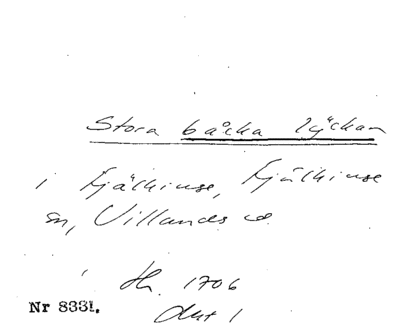 Stora båcka lyckan
i Fjälkinge, Fjälkinge
sn, Villands hd
Hs. 1706
Akt 1
Nr 8331.